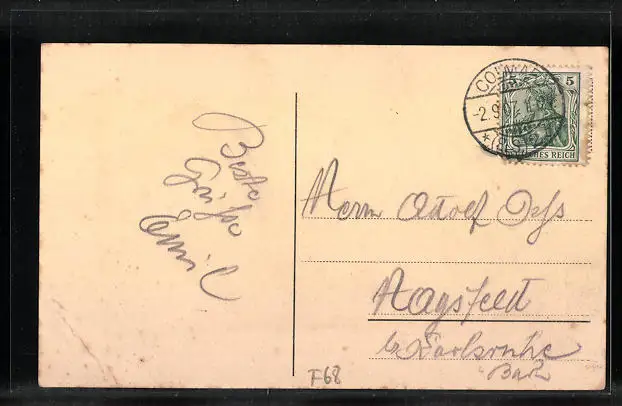 Beste
Grüße
Emil
COLMAR
-2.9.07
*(ELS)
5
DEUTSCHES REICH
Herrn Adolf
Hagsfeld
bei Karlsruhe
Baden
F68